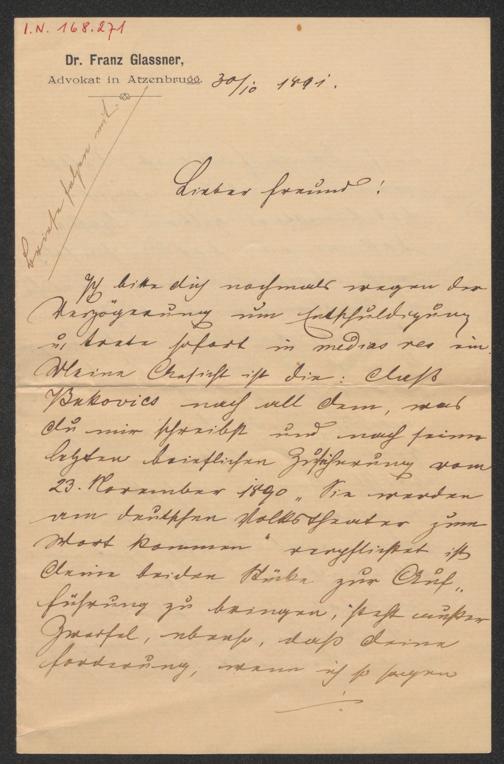 I.N. 168.271
Dr. Franz Glassner,
Advokat in Atzenbrugg.
30/10 1891.
Briefe folgen mit.
Lieber Freund!
Ich bitte dich nochmals wegen der
Verzögerung um Entschuldigung
u. trete sofort in medias res ein.
Meine Ansicht ist die: daß
Bukovics nach all dem, was
du mir schreibst und nach seiner
letzten brieflichen Zusicherung vom
23. November 1890 „Sie werden
am deutschen Volkstheater zum
Wort kommen“ verpflichtet ist
deine beiden Stücke zur Auf„
führung zu bringen, steht außer
Zweifel, ebenso, daß deine
Forderung, wenn ich so sagen